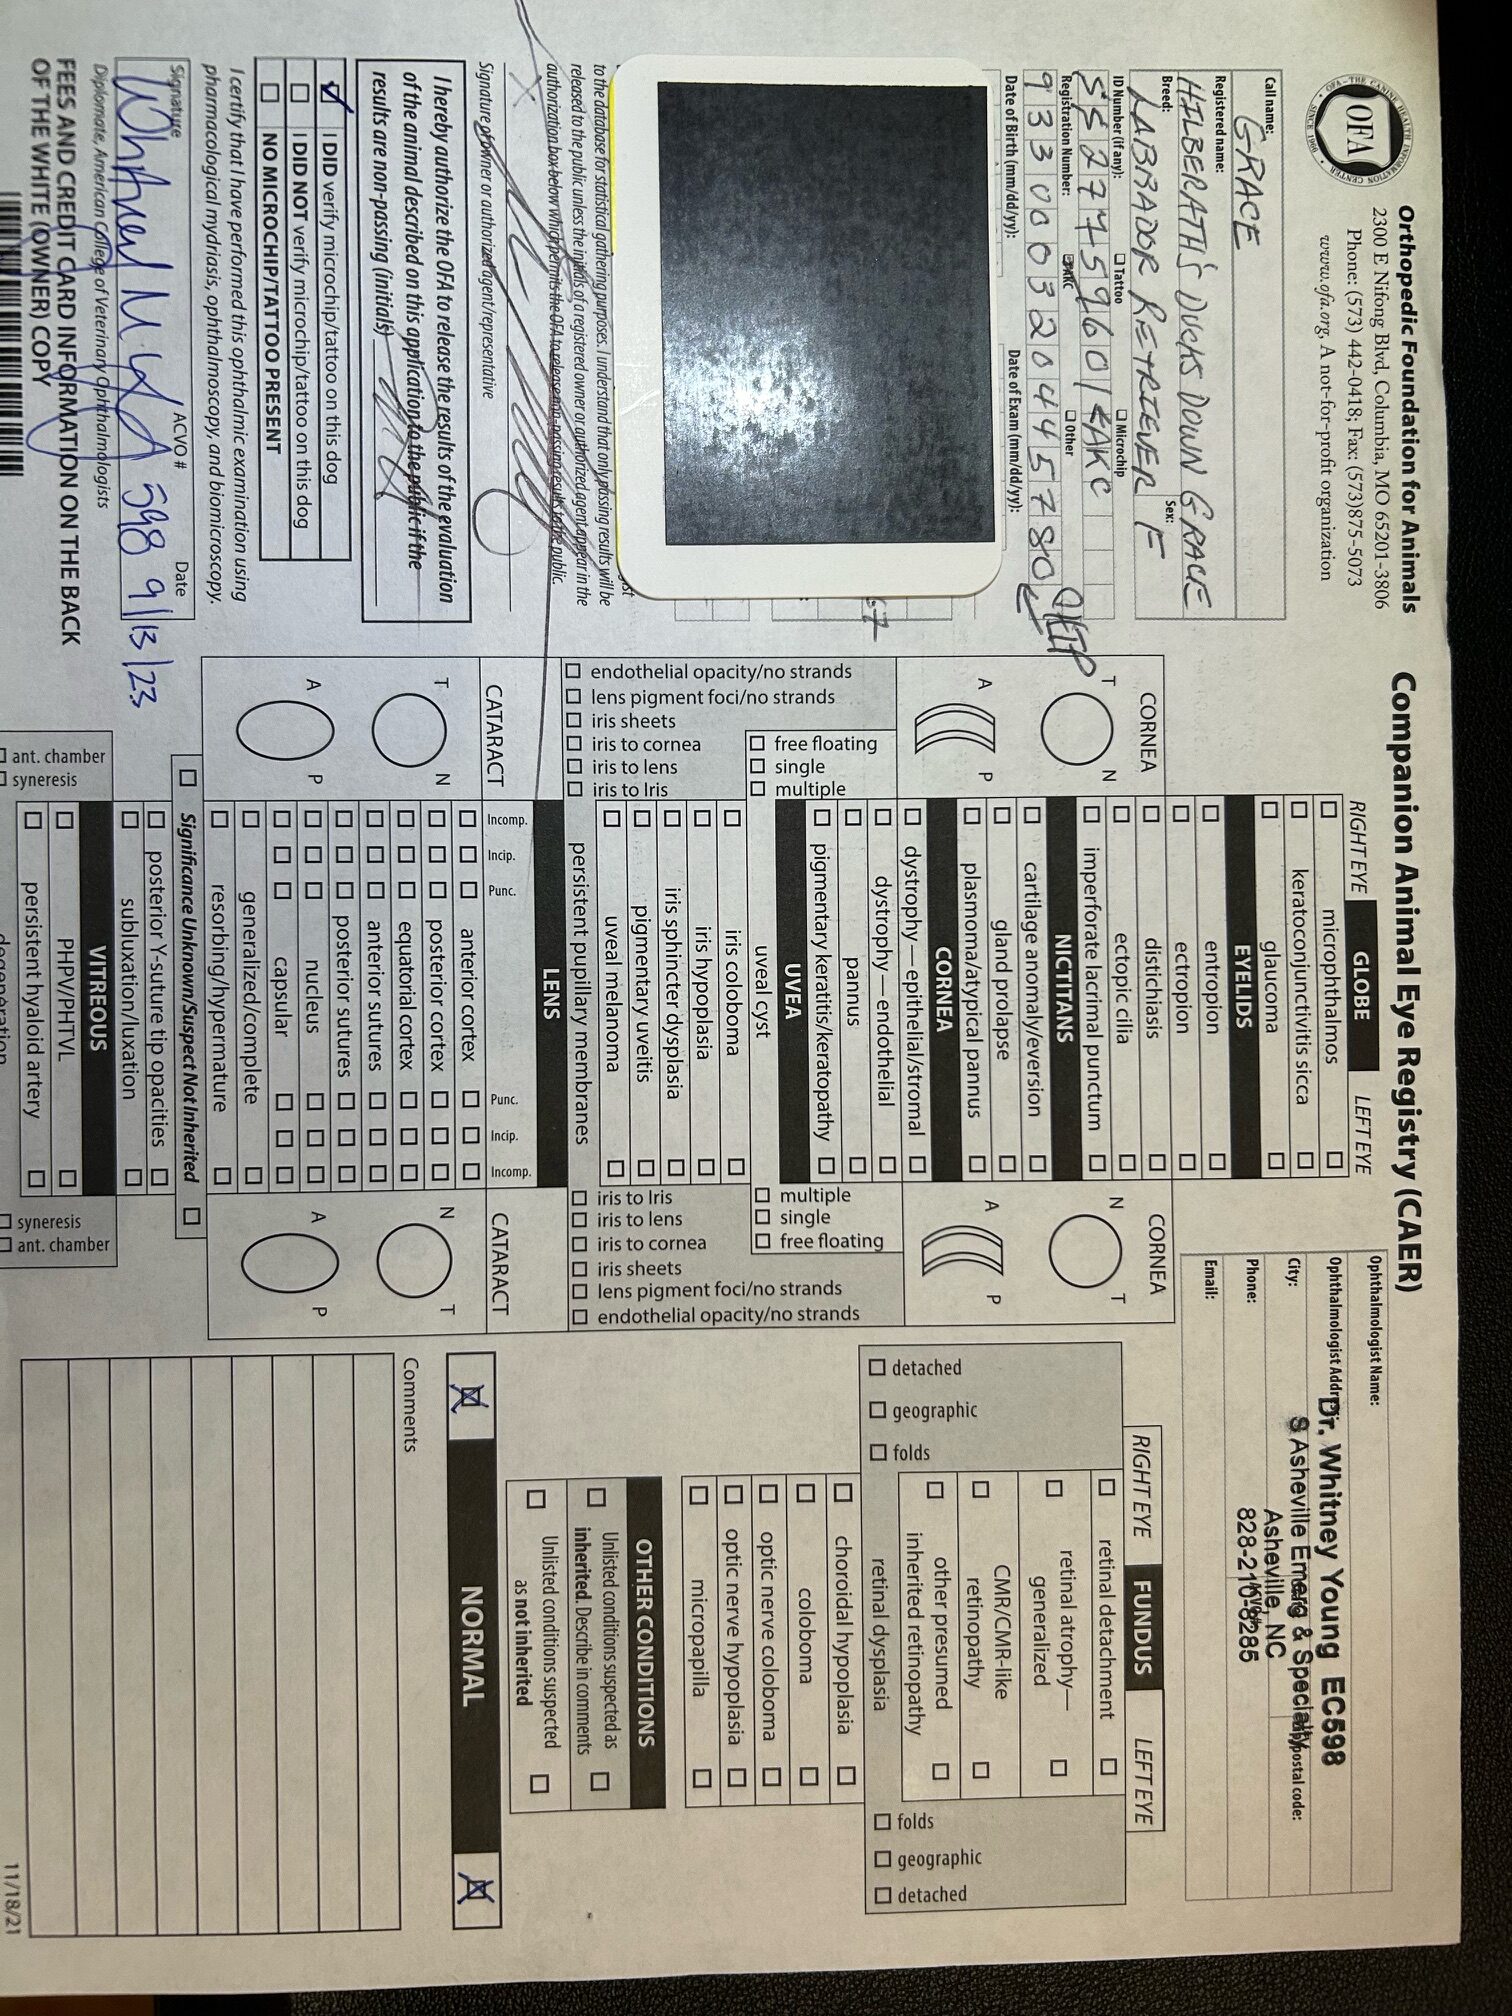 Orthopedic Foundation for Animals
2300 E Nifong Blvd, Columbia, MO 65201-3806
Phone: (573) 442-0418; Fax: (573)875-5073
www.ofa.org, A not-for-profit organization
OFA
OFA - THE CANINE HEALTH INFORMATION CENTER
SINCE 1966
Companion Animal Eye Registry (CAER)
Call name:
GRACE
Registered name:
HILBERATH'S DUCKS DOWN GRACE
Breed:
Sex:
LABRADOR RETRIEVER F
ID Number (if any):
Tattoo
Microchip
SS27759601 AKC
Registration Number:
AKC
Other
933000320445780
CHIP
Date of Birth (mm/dd/yy):
Date of Exam (mm/dd/yy):
67
to the database for statistical gathering purposes. I understand that only passing results will be
released to the public unless the initials of a registered owner or authorized agent appear in the
authorization box below which permits the OFA to release non-passing results to the public.
X
Signature of owner or authorized agent/representative
I hereby authorize the OFA to release the results of the evaluation
of the animal described on this application to the public if the
results are non-passing (initials)
I DID verify microchip/tattoo on this dog
I DID NOT verify microchip/tattoo on this dog
NO MICROCHIP/TATTOO PRESENT
I certify that I have performed this ophthalmic examination using
pharmacological mydriasis, ophthalmoscopy, and biomicroscopy.
Signature
ACVO #
Date
598 9/13/23
Diplomate, American College of Veterinary Ophthalmologists
FEES AND CREDIT CARD INFORMATION ON THE BACK
OF THE WHITE (OWNER) COPY
RIGHT EYE
GLOBE
LEFT EYE
microphthalmos
keratoconjunctivitis sicca
glaucoma
EYELIDS
entropion
ectropion
distichiasis
ectopic cilia
imperforate lacrimal punctum
NICTITANS
cartilage anomaly/eversion
gland prolapse
plasmoma/atypical pannus
CORNEA
dystrophy—epithelial/stromal
dystrophy—endothelial
pannus
pigmentary keratitis/keratopathy
UVEA
uveal cyst
iris coloboma
iris hypoplasia
iris sphincter dysplasia
pigmentary uveitis
uveal melanoma
persistent pupillary membranes
LENS
Incomp.
Incip.
Punc.
Punc.
Incip.
Incomp.
anterior cortex
posterior cortex
equatorial cortex
anterior sutures
posterior sutures
nucleus
capsular
generalized/complete
resorbing/hypermature
Significance Unknown/Suspect Not Inherited
posterior Y-suture tip opacities
subluxation/luxation
VITREOUS
PHPV/PHTVL
persistent hyaloid artery
degeneration
CORNEA
T
N
A
P
free floating
single
multiple
endothelial opacity/no strands
lens pigment foci/no strands
iris sheets
iris to cornea
iris to lens
iris to Iris
CATARACT
T
N
A
P
ant. chamber
syneresis
CORNEA
N
T
A
P
multiple
single
free floating
iris to Iris
iris to lens
iris to cornea
iris sheets
lens pigment foci/no strands
endothelial opacity/no strands
CATARACT
N
T
A
P
syneresis
ant. chamber
Ophthalmologist Name:
Dr. Whitney Young EC598
Ophthalmologist Address:
Asheville Emerg & Specialty
City:
postal code:
Asheville, NC
Phone:
828-210-8285
Email:
RIGHT EYE
FUNDUS
LEFT EYE
retinal detachment
retinal atrophy—
generalized
CMR/CMR-like
retinopathy
other presumed
inherited retinopathy
retinal dysplasia
detached
geographic
folds
folds
geographic
detached
choroidal hypoplasia
coloboma
optic nerve coloboma
optic nerve hypoplasia
micropapilla
OTHER CONDITIONS
Unlisted conditions suspected as
inherited. Describe in comments
Unlisted conditions suspected
as not inherited
NORMAL
Comments
11/18/21